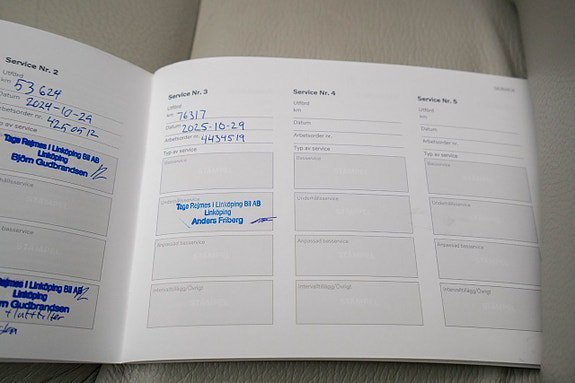 Service Nr. 2
Utförd
km 53 624
Datum 2024-10-29
Arbetsorder nr. 4250512
Typ av service
Tage Rejmes i Linköping Bil AB
Linköping
Björn Gudbrandsen
Underhållsservice
basservice
Tage Rejmes i Linköping Bil AB
Linköping
Björn Gudbrandsen
+ luftfilter
Service Nr. 3
Utförd
km 76317
Datum 2025-10-29
Arbetsorder nr. 4434519
Typ av service
Basservice
STÄMPEL
Underhållsservice
Tage Rejmes i Linköping Bil AB
Linköping
Anders Friberg
Anpassad basservice
STÄMPEL
Intervalltillägg/Övrigt
STÄMPEL
Service Nr. 4
Utförd
km
Datum
Arbetsorder nr.
Typ av service
Basservice
STÄMPEL
Underhållsservice
STÄMPEL
Anpassad basservice
STÄMPEL
Intervalltillägg/Övrigt
STÄMPEL
SERVICE
Service Nr. 5
Utförd
km
Datum
Arbetsorder nr.
Typ av service
Basservice
STÄMPEL
Underhållsservice
STÄMPEL
Anpassad basservice
STÄMPEL
Intervalltillägg/Övrigt
STÄMPEL